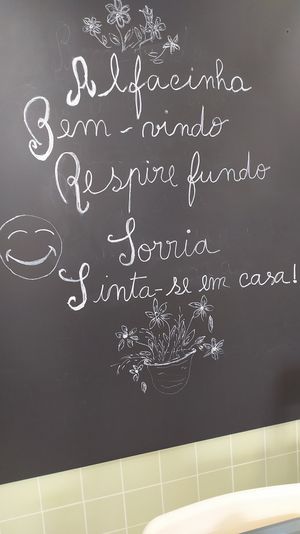 Alfacinha
Bem-vindo
Respire fundo
Sorria
Sinta-se em casa!